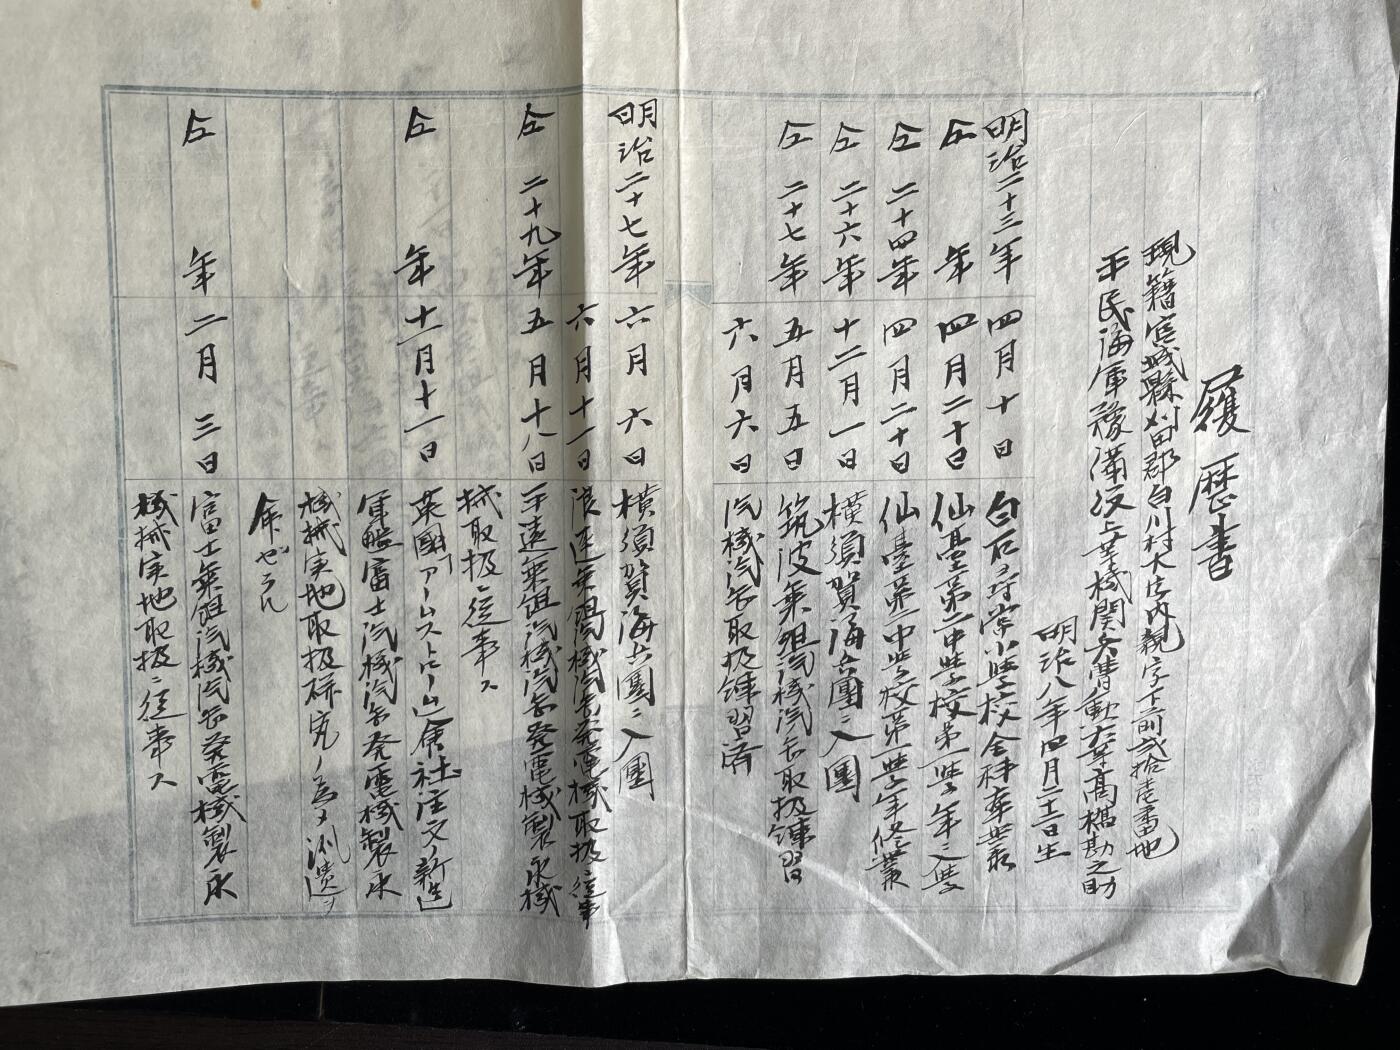 履歴書
現籍宮城縣刈田郡白川村大字内親字下前貳拾壱番地
平民海軍豫備役上等機関兵曹勲六等高橋勘之助
明治八年四月二十二日生
明治二十三年 四月十日 白石尋常小學校全科卒業
仝 年 四月二十日 仙臺第二中學校第一學年ニ入學
仝 二十四年 四月二十日 仙臺第二中學校第一學年修業
仝 二十六年 十二月一日 横須賀海兵團ニ入團
仝 二十七年 五月五日 筑波乗組汽機汽缶取扱練習
六月六日 汽機汽缶取扱練習済
明治二十七年 六月六日 横須賀海兵團ニ入團
六月十一日 浪速乗組汽機汽缶発電機取扱ニ従事
仝 二十九年 五月十八日 平遠乗組汽機汽缶発電機製氷機
械取扱ニ従事ス
仝 年 十一月十一日 英國アームストローム会社注文ノ新造
軍艦富士汽機汽缶発電機製氷
機械実地取扱研究ノ為メ派遣ヲ
命ゼラル
仝 年 二月三日 富士乗組汽機汽缶発電機製氷
機械実地取扱ニ従事ス